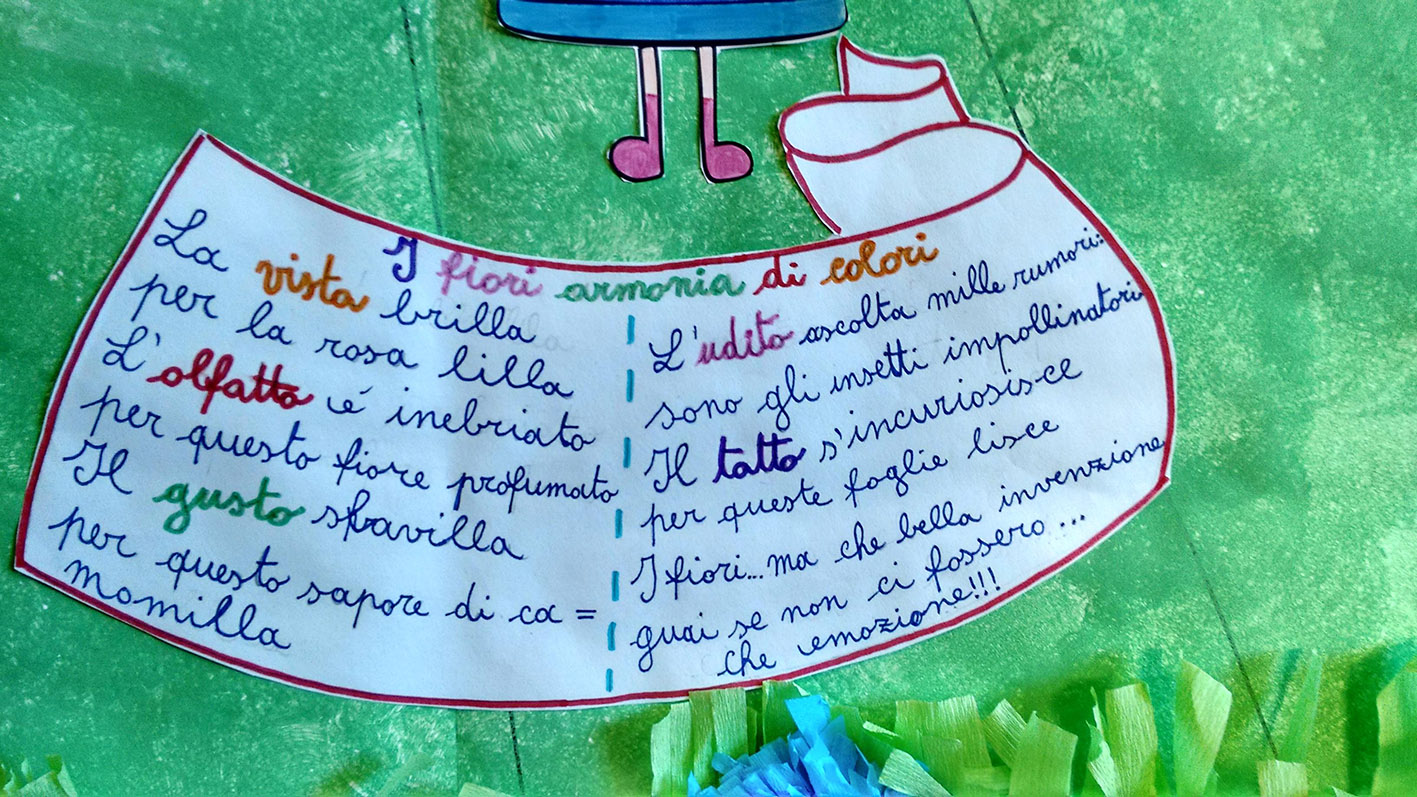 I fiori armonia di colori
La vista brilla
per la rosa lilla
L'olfatto é inebriato
per questo fiore profumato
Il gusto sfavilla
per questo sapore di ca=
momilla
L'udito ascolta mille rumori:
sono gli insetti impollinatori
Il tatto s'incuriosisce
per queste foglie lisce
I fiori... ma che bella invenzione
guai se non ci fossero...
che emozione!!!